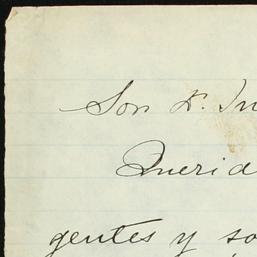 Son D. In
Querid
gentes y so